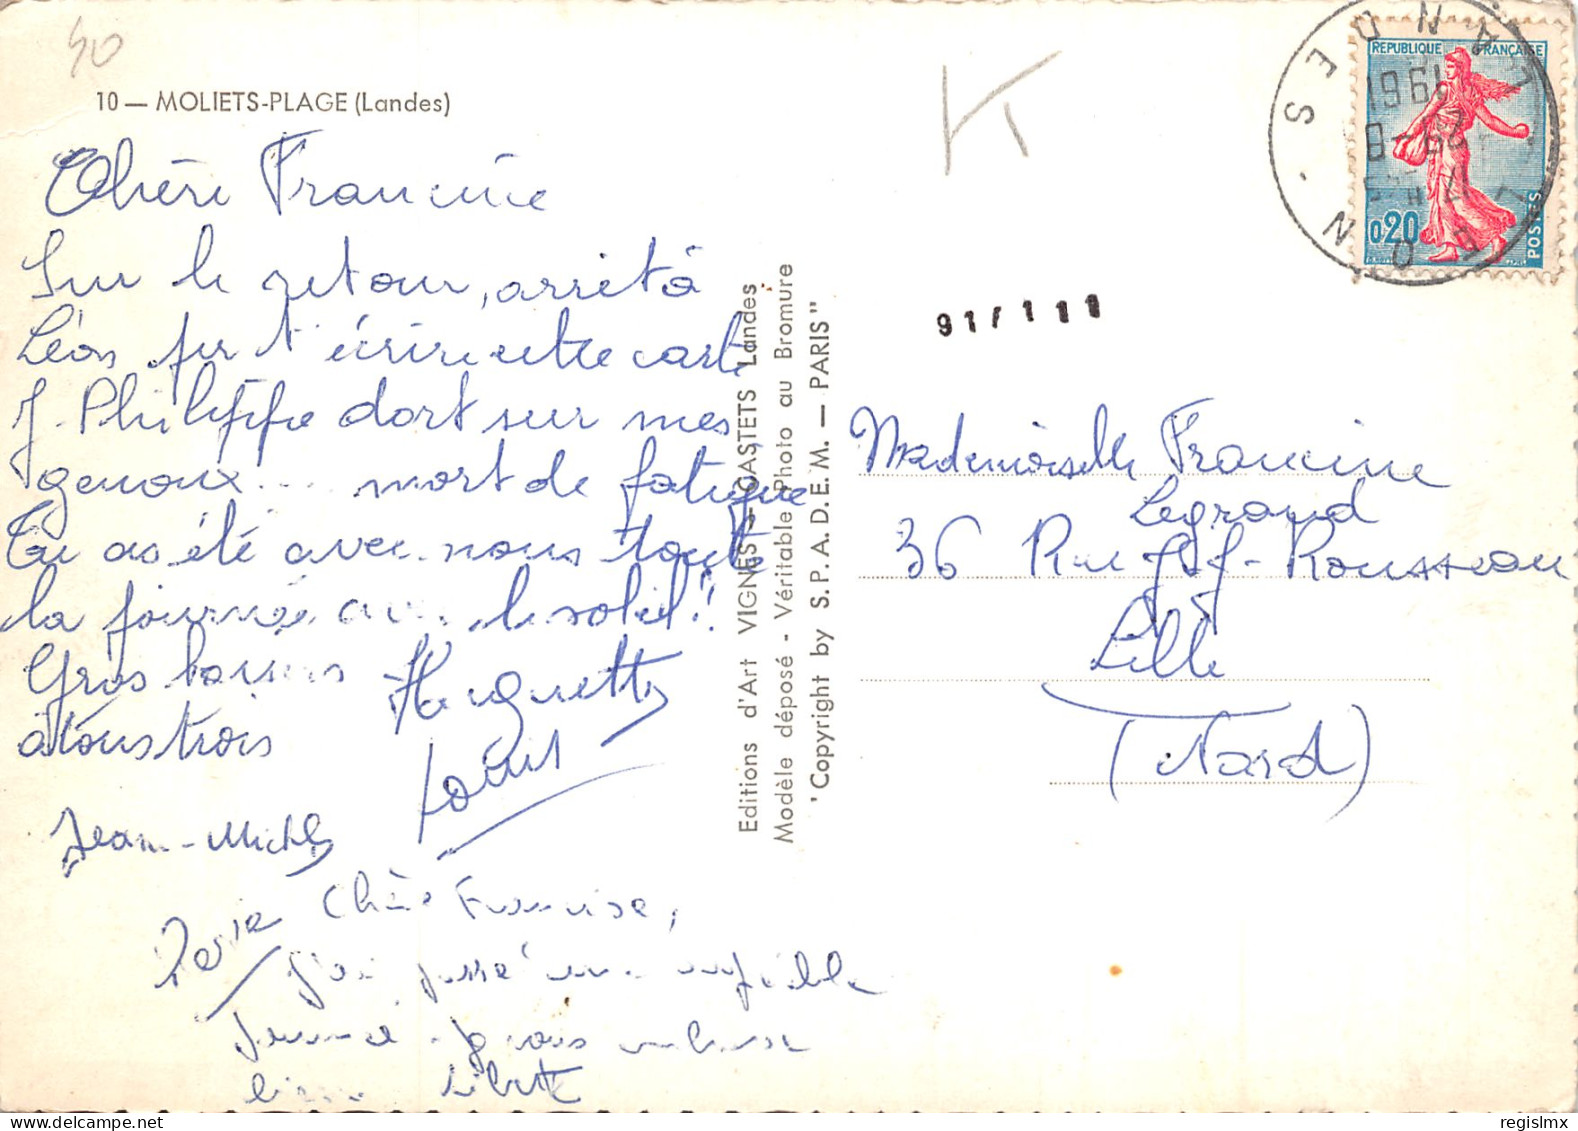 40
10 — MOLIETS-PLAGE (Landes)
Chère Francine
Sur le retour, arrêt à
Léon pr t'écrire cette carte
J. Philippe dort sur mes
genoux... mort de fatigue
Tu as été avec nous toute
la journée avec le soleil!!
Gros baisers
à tous trois
Huguette
Louis
Jean-Michel
Chère Francine,
j'ai passé une
journée
Editions d'Art VIGNES - CASTETS Landes
Modèle déposé - Véritable Photo au Bromure
"Copyright by S.P.A.D.E.M. — PARIS"
LEON LANDES
1961
REPUBLIQUE FRANÇAISE
0,20
POSTES
91/111
Mademoiselle Francine
Legrand
36 Rue J.J. Rousseau
Lille
(Nord)
regislmx